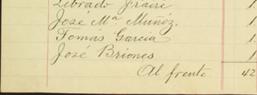 Librado Fraire 1
José Mª Muñoz. 1
Tomás Garcia 1
José Briones 1
Al frente 42